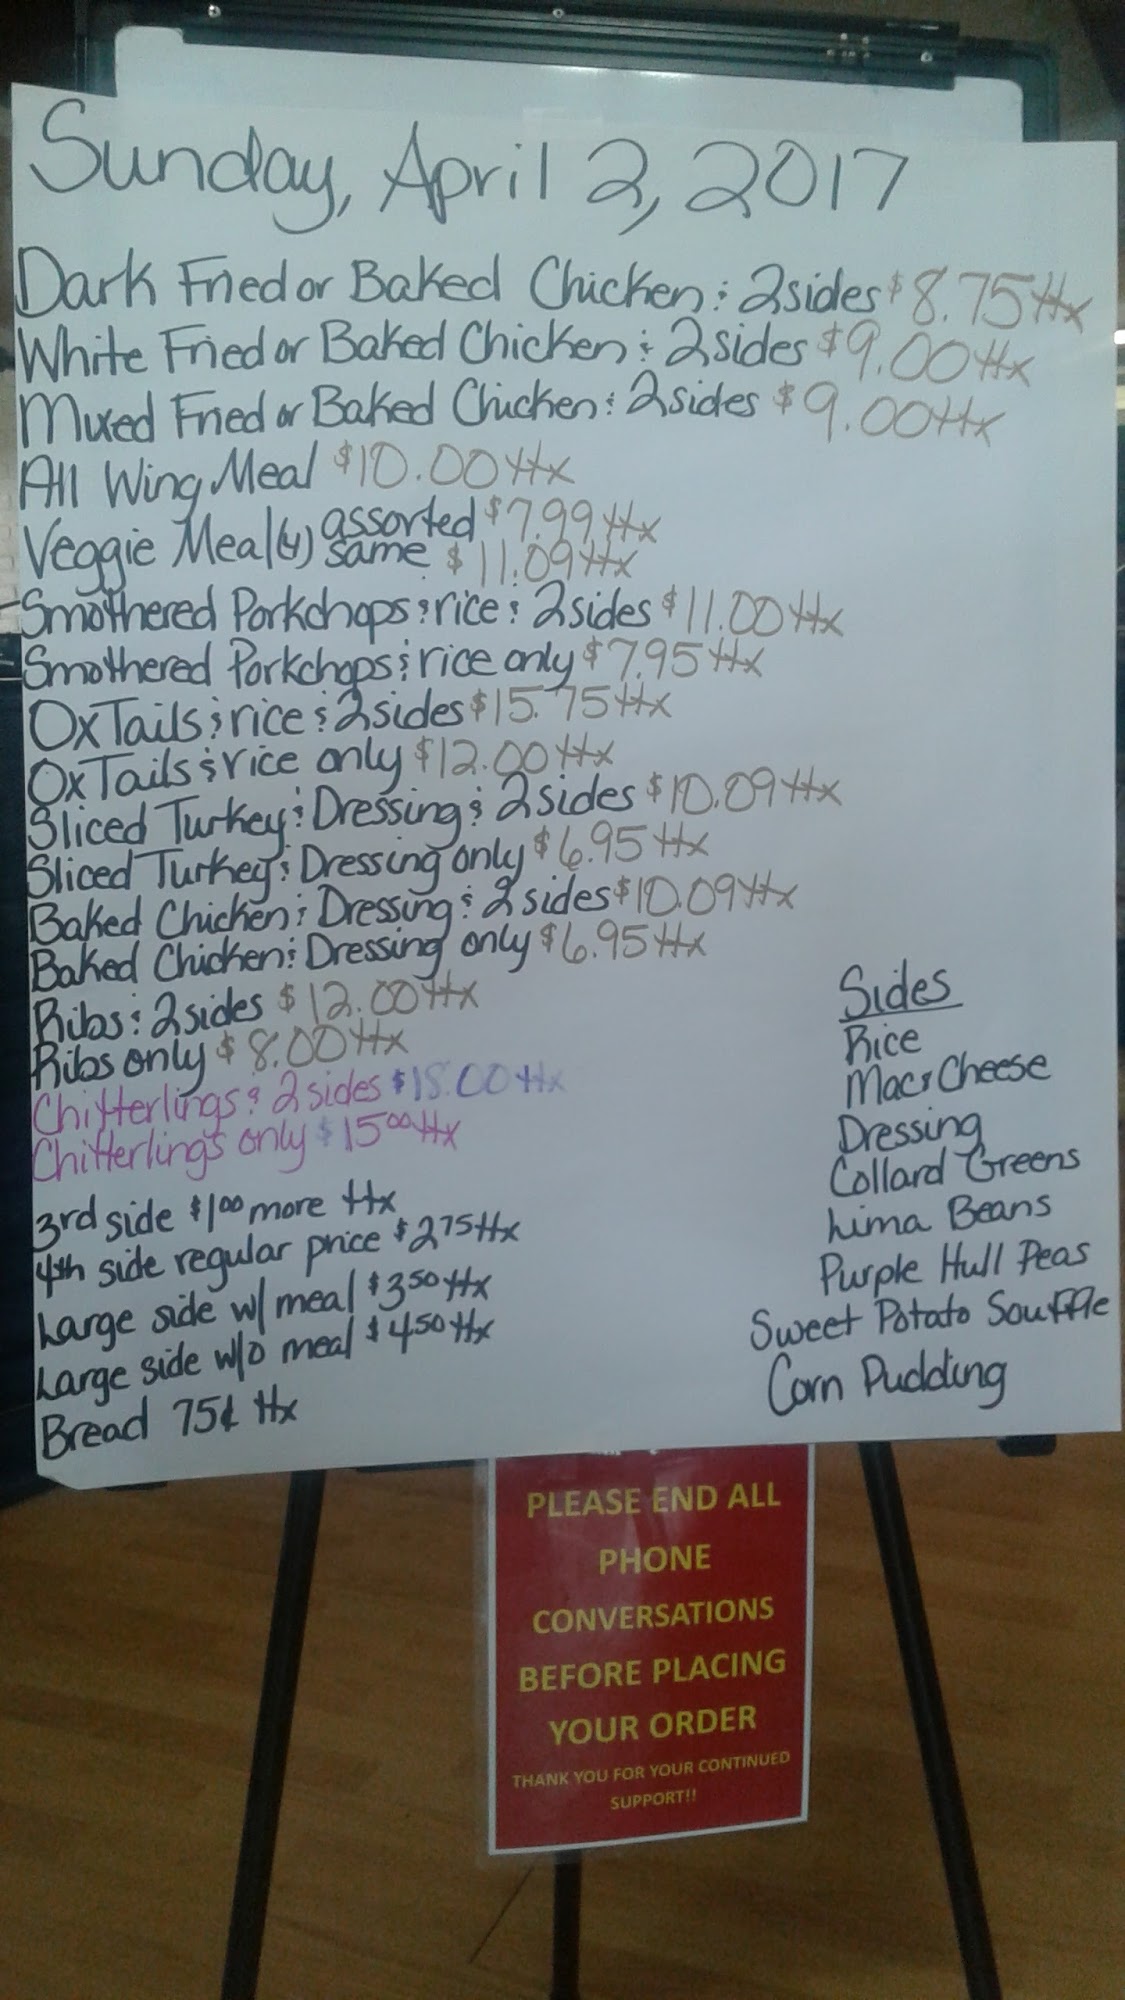 Sunday, April 2, 2017
Dark Fried or Baked Chicken & 2 sides $8.75 +tx
White Fried or Baked Chicken & 2 sides $9.00 +tx
Mixed Fried or Baked Chicken & 2 sides $9.00 +tx
All Wing Meal $10.00 +tx
Veggie Meal (4) assorted $7.99 +tx
same $11.09 +tx
Smothered Porkchops & rice & 2 sides $11.00 +tx
Smothered Porkchops & rice only $7.95 +tx
Ox Tails & rice & 2 sides $15.75 +tx
Ox Tails & rice only $12.00 +tx
Sliced Turkey & Dressing & 2 sides $10.09 +tx
Sliced Turkey & Dressing only $6.95 +tx
Baked Chicken & Dressing & 2 sides $10.09 +tx
Baked Chicken & Dressing only $6.95 +tx
Ribs & 2 sides $12.00 +tx
Ribs only $8.00 +tx
Chitterlings & 2 sides $18.00 +tx
Chitterlings only $15.00 +tx
3rd side $1.00 more +tx
4th side regular price $2.75 +tx
Large side w/ meal $3.50 +tx
Large side w/o meal $4.50 +tx
Bread 75¢ +tx
Sides
Rice
Mac & Cheese
Dressing
Collard Greens
Lima Beans
Purple Hull Peas
Sweet Potato Souffle
Corn Pudding
PLEASE END ALL
PHONE
CONVERSATIONS
BEFORE PLACING
YOUR ORDER
THANK YOU FOR YOUR CONTINUED
SUPPORT!!